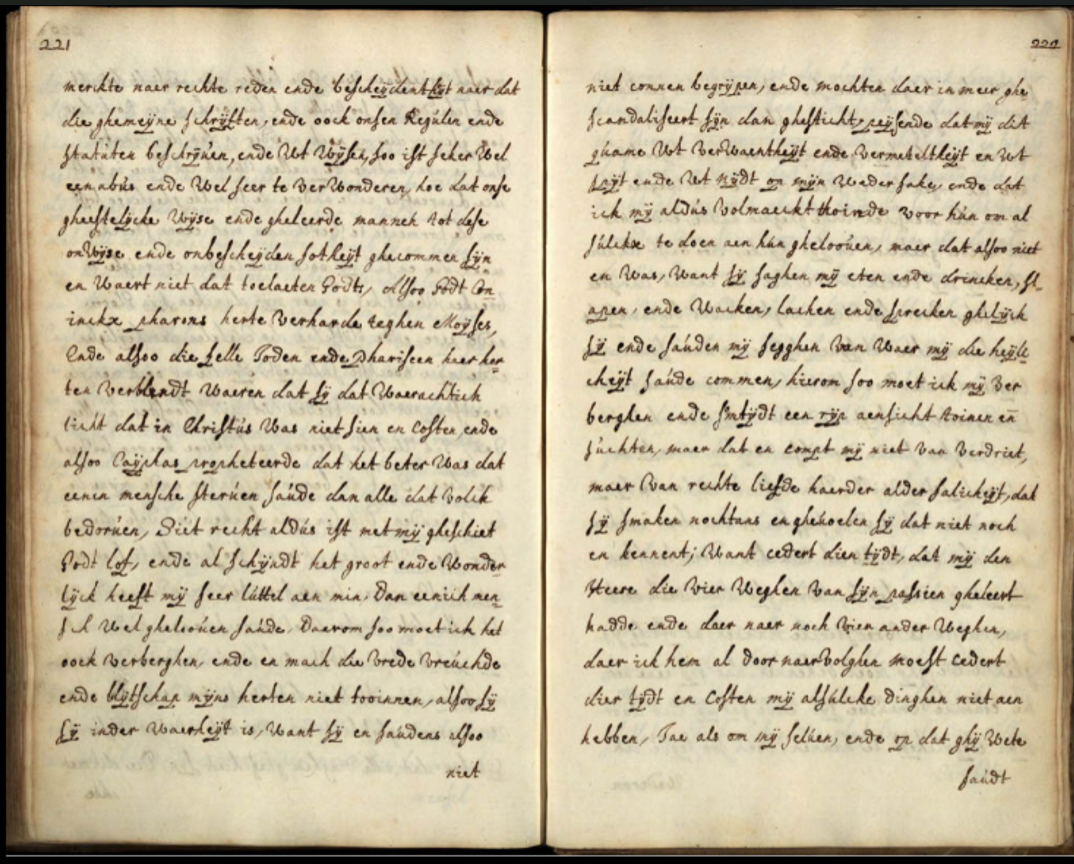 221
merckte naer rechte reden ende bescheÿdentheÿt naer dat
die ghemeÿne schrÿften, ende oock onsen Regúlen ende
statúten beschrÿúen, ende Wt Wÿsen, soo ist seker Wel
een abús ende Wel seer te verWonderen, hoe dat onse
gheestelÿcke Wÿse ende gheleerde mannen tot dese
onWÿse ende onbescheÿden sotheÿt ghecommen sÿn
en Waert niet dat toelaeten Godts, Alsoo Godt Con
inckx pharons herte verharde teghen Moÿses,
Ende alsoo die felle Joden ende Phariseen haer her
ten verblendt Waeren dat sÿ dat Waerachtich
licht dat in Christús Was niet sien en Costen, ende
alsoo Caÿphas propheteerde dat het beter Was dat
eenen mensche sterúen saúde dan alle dat volck
bedorúen, Siet recht aldús ist met mÿ gheschiet
Godt lof, ende al schÿndt het groot ende Wonder
lÿck heeft mÿ seer lúttel aen min, Dan eenich men
sch Wel ghelooúen saúde, Daerom soo moet ick het
oock verberghen, ende en mach die vrede vreúchde
ende blÿtschap mÿns herten niet tooinnen, alsoo sÿ
sÿ inder Waerheÿt is, Want sÿ en saúdens alsoo
niet
222
niet connen begrÿpen, ende mochten daer in meer ghe
scandaliseert sÿn dan ghesticht, peÿsende dat mÿ dit
qúame Wt verWaentheÿt ende vermeteltheÿt en Wt
ende Wt nÿdt op mÿn Weder sake, ende dat
ick mÿ aldús volmaeckt thoinde voor hún om al
súlckx te doen aen hún ghelooúen, maer dat alsoo niet
en Was, Want sÿ saghen mÿ eten ende drincken, sl
apen, ende Waeken, lachen ende sprecken ghelÿck
sÿ ende saúden mÿ segghen van Waer mÿ die heÿli
cheÿt saúde commen, hierom soo moet ick mÿ ver
berghen ende smtÿdt een rÿp aensicht toinen en̄
súchten, maer dat en compt mÿ niet van verdriet,
maer van rechte liefde haerder alder salicheÿt, dat
sÿ smaken nochtans en gheúoelen sÿ dat niet noch
en kennent; Want cedert dien tÿdt, dat mÿ den
Heere die vier Weghen van sÿn passien gheleert
hadde ende daer naer noch vier ander Weghen,
daer ick hem al door naervolghen moest cedert
dier tÿdt en Costen mÿ alsúlcke dinghen niet aen
hebben, Jae als om mÿ selúen, ende op dat ghÿ Wete
saúdt